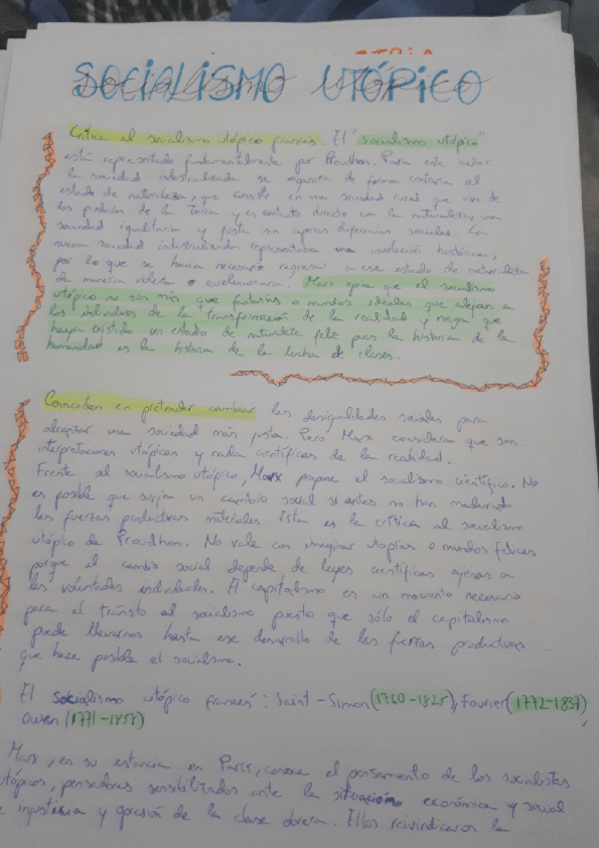 SOCIALISMO UTÓPICO
Crítica al socialismo utópico francés. El "socialismo utópico"
está representado fundamentalmente por Proudhon. Para este autor
la sociedad industrializada se organiza de forma contraria al
estado de naturaleza, que consiste en una sociedad rural que vive de
los productos de la tierra y es contacto directo con la naturaleza, una
sociedad igualitaria y justa sin apenas diferencias sociales. La
nueva sociedad industrializada representaba una involución histórica,
por lo que se hacía necesario regresar a ese estado de naturaleza
de manera violenta o revolucionaria. Marx opina que el socialismo
utópico no son más que fantasías o mundos ideales que alejan a
los individuos de la transformación de la realidad y niega que
haya existido un estado de naturaleza feliz pues la historia de la
humanidad es la historia de la lucha de clases.
Coinciden en pretender cambiar las desigualdades sociales para
alcanzar una sociedad más justa. Pero Marx considera que son
interpretaciones utópicas y nada científicas de la realidad.
Frente al socialismo utópico, Marx propone el socialismo científico. No
es posible que surja un cambio social si antes no han madurado
las fuerzas productivas materiales. Esta es la crítica al socialismo
utópico de Proudhon. No vale con imaginar utopías o mundos felices
porque el cambio social depende de leyes científicas ajenas a
las voluntades individuales. El capitalismo es un momento necesario
para el tránsito al socialismo puesto que sólo el capitalismo
puede llevarnos hasta ese desarrollo de las fuerzas productivas
que hace posible el socialismo.
El socialismo utópico francés: Saint-Simon (1760-1825), Fourier (1772-1837),
Owen (1771-1858)
Marx, en su estancia en París, conoce el pensamiento de los socialistas
utópicos, pensadores sensibilizados ante la situación económica y social
injusticia y opresión de la clase obrera. Ellos reivindicaron la